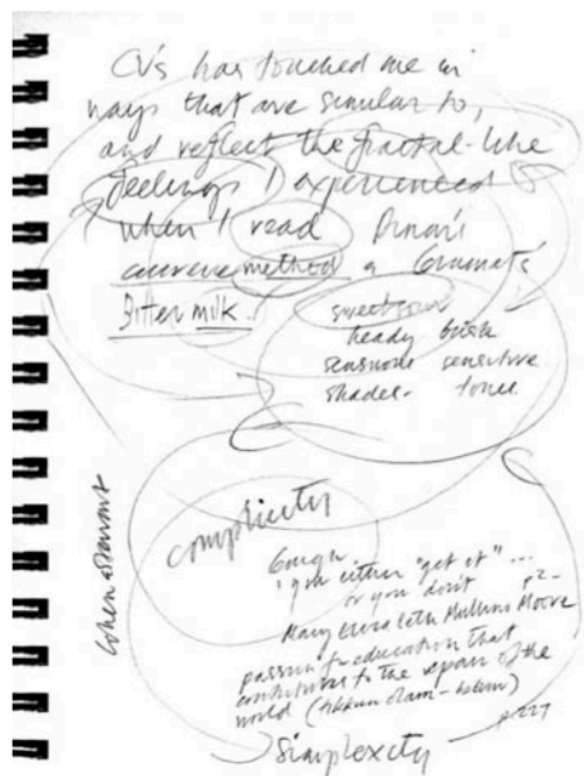 CVs has touched me in
ways that are similar to,
and reflect the fractal-like
feelings I experienced
when I read Pinar's
currere method & Grumet's
Bitter milk.
sweet sour
heady brisk
sensuous sensitive
shades - tones
complicity
Gough
"you either "get it" ...
or you don't p2-
Mary Elizabeth Mullino Moore
passion for education that
contributes to the repair of the
world (tikkun olam -
p.227
Simplexity
Cohen &